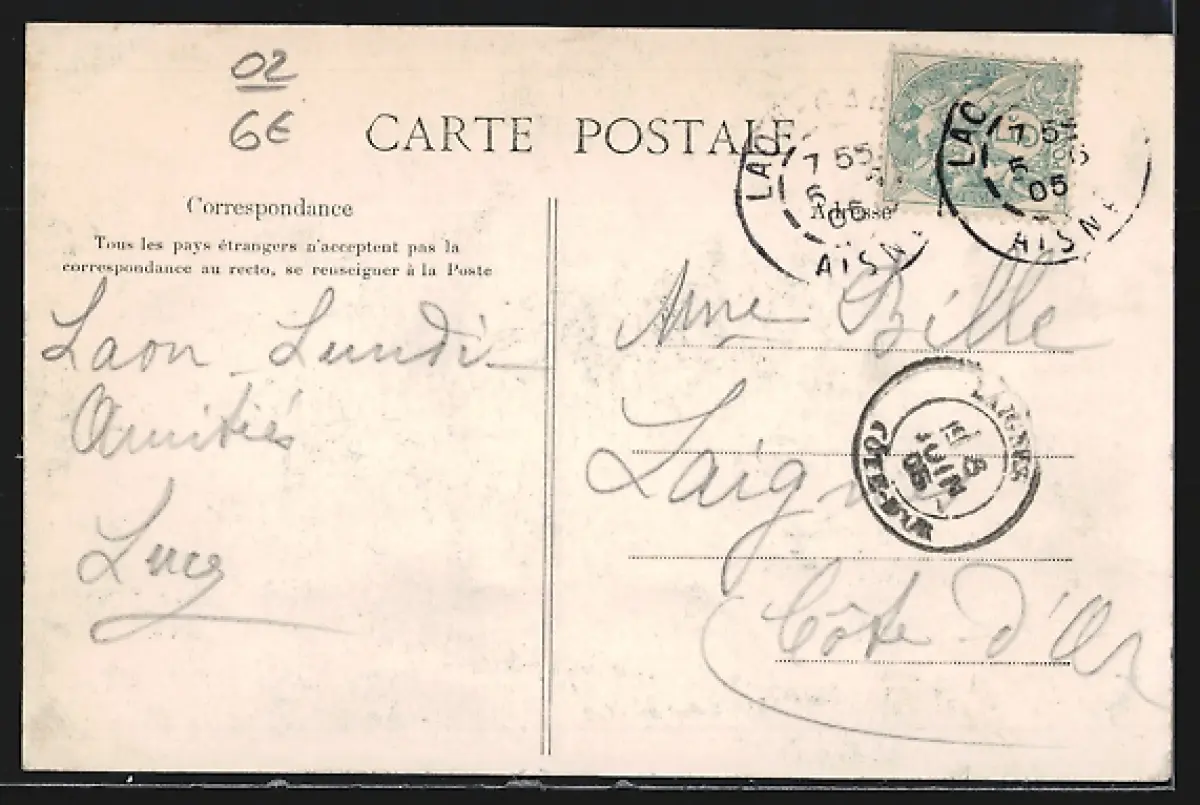 02
6€
CARTE POSTALE
Correspondance
Tous les pays étrangers n'acceptent pas la
correspondance au recto, se renseigner à la Poste
Laon Lundi
Amitiés
Lucy
Adresse
Mme Bille
Laignes
Côte d'Or
7 55
5
05
AISNE
7 5
5
05
AISNE
LAIGNES
6
JUIN
05
CÔTE-D'OR